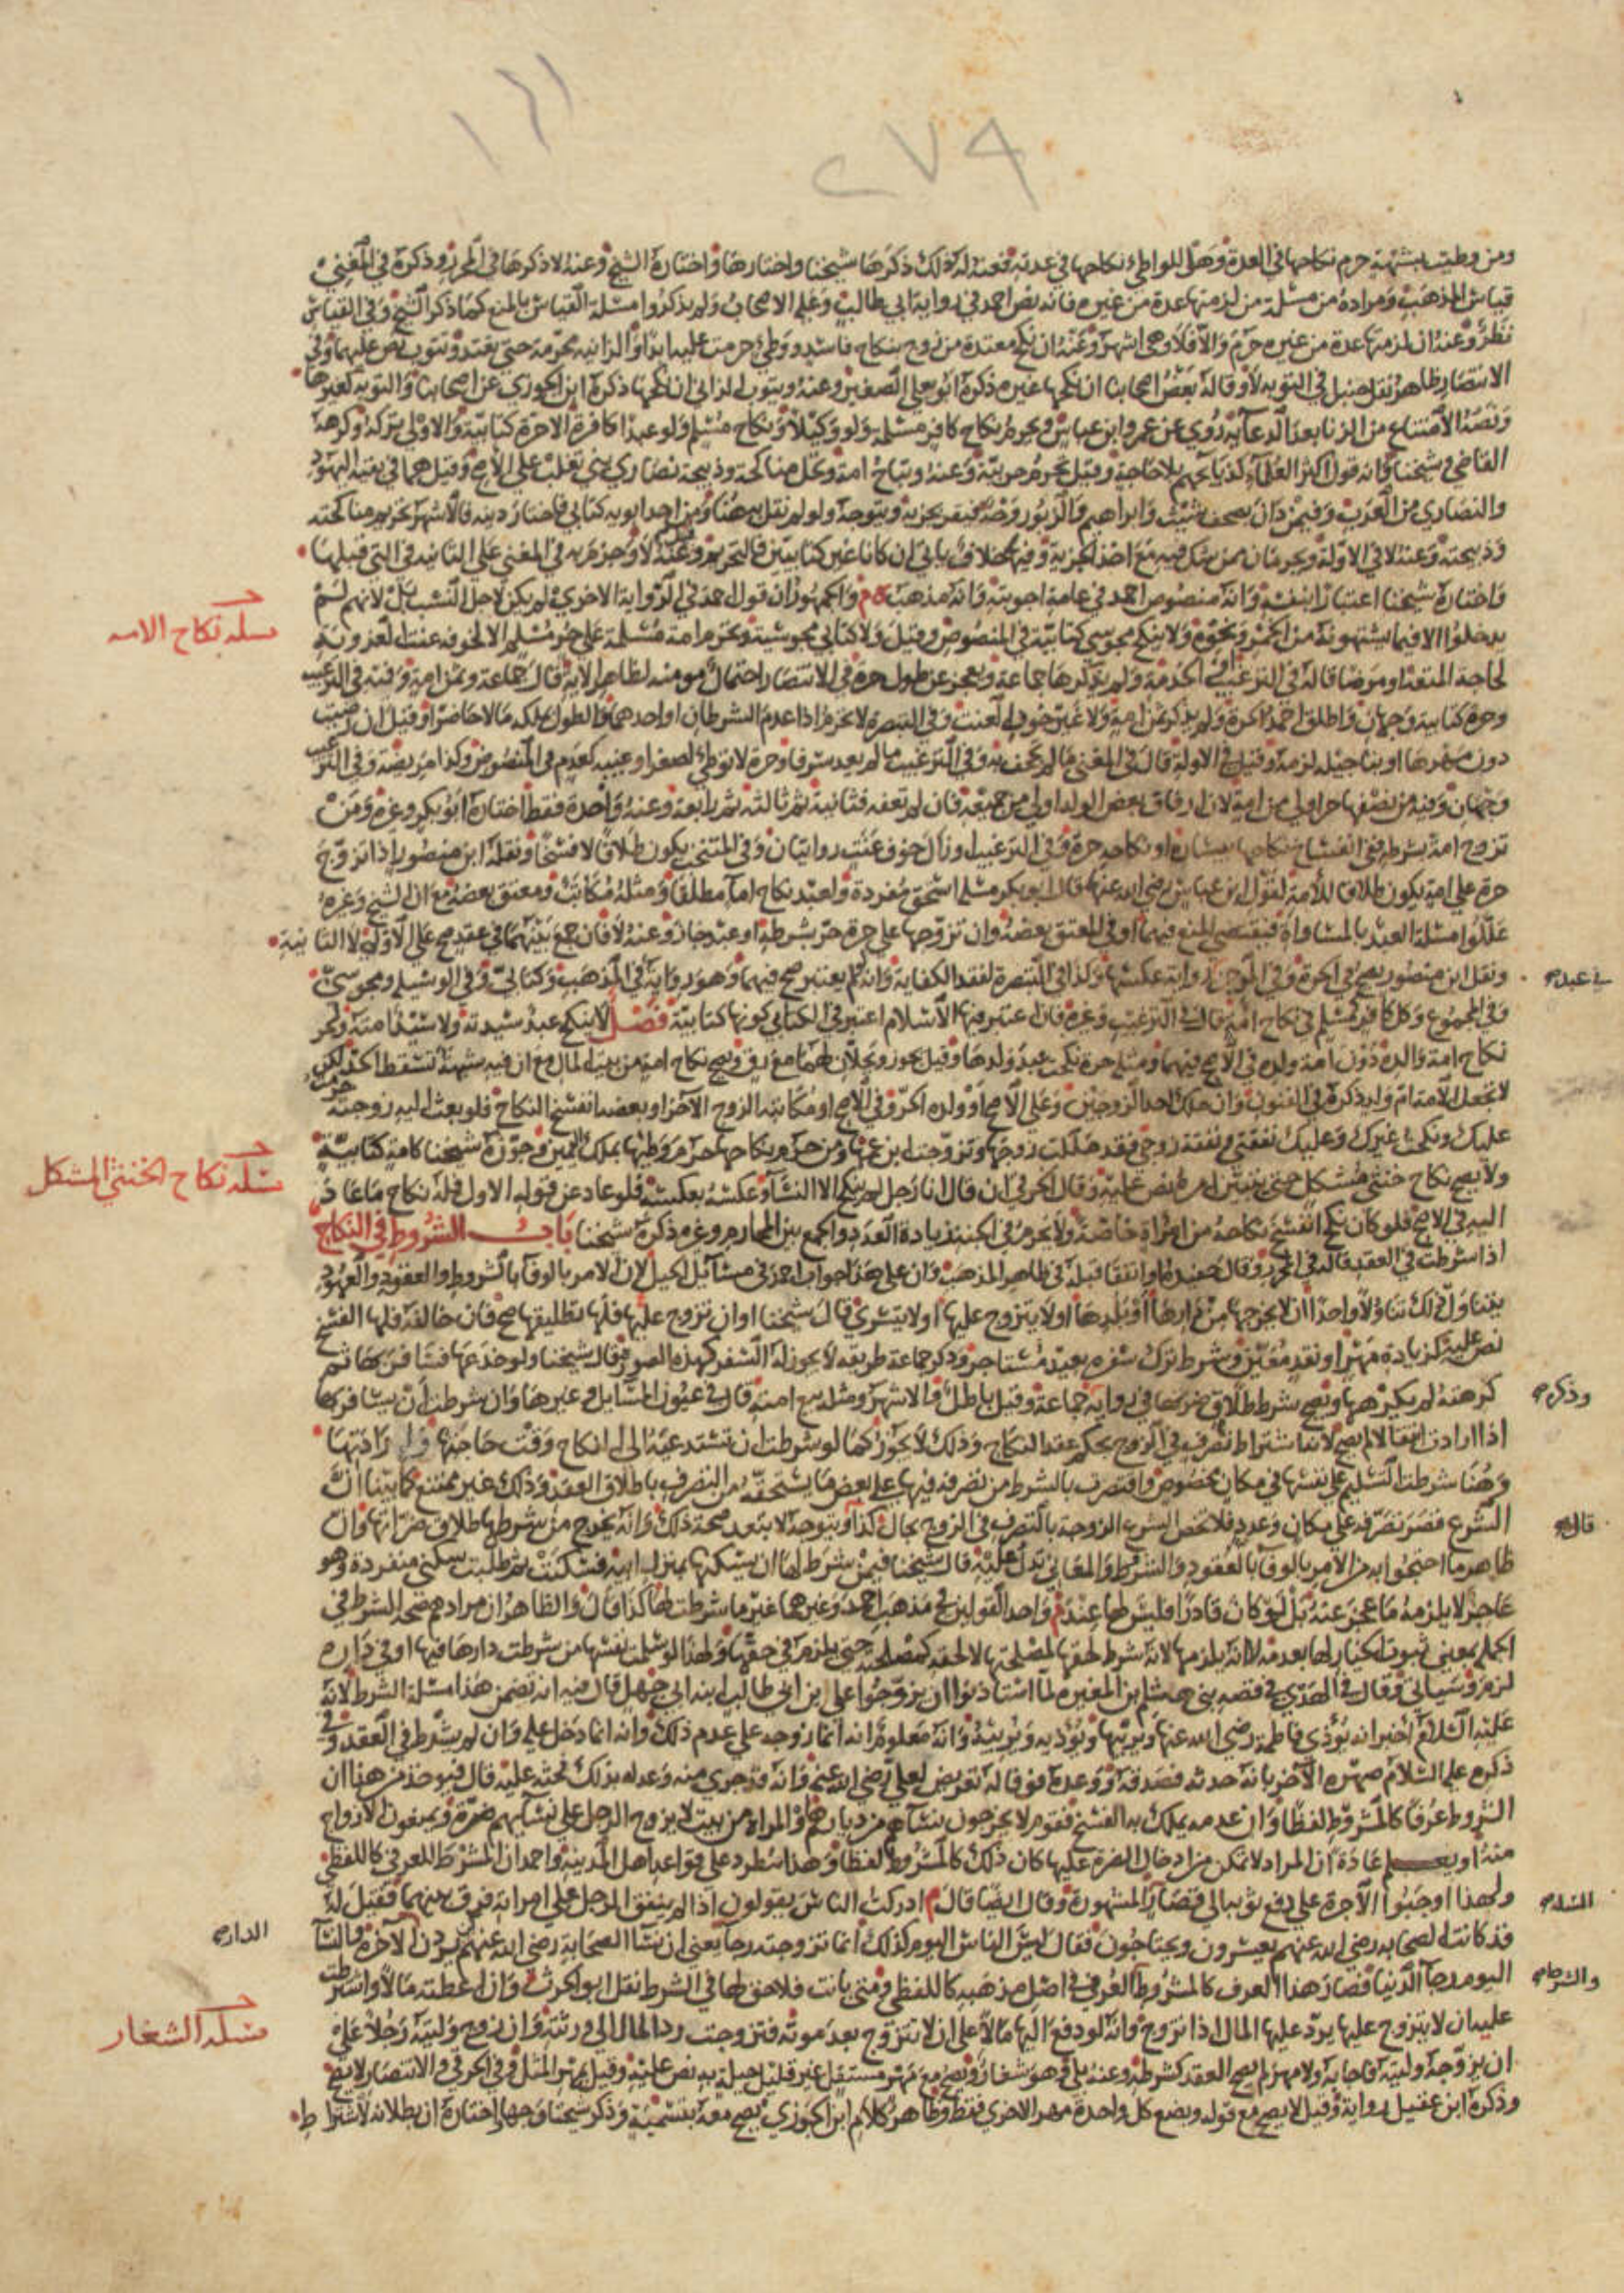 ١٢١
٢٧٩
ومن وطئت بشبهة حرم نكاحها في العدة وهل للواطئ نكاحها في عدته فعنه له ذلك ذكرها شيخنا واختارها واختاره الشيخ وعنه لا ذكرها في المحرر وذكره في المغني
قياس المذهب ومراده من مسئلة من لزمتها عدة من غيره فانه نص احمد في رواية ابي طالب وعليه الاصحاب ولم يذكروا مسئلة القياس بالمنع كما ذكر الشيخ وفي القياس
نظر وعنه ان لزمتها عدة من غيره حرم والا فلا وهي اشهر وعنه ان نكح معتدة من زوج بنكاح فاسد ووطئ حرمت عليه ابدا والزانية محرمة حتى تعتد وتتوب نص عليهما وفي
الانتصار ظاهر نقل حنبل في التوبة لا وقاله بعض اصحابنا ان نكحها غيره ذكره ابو يعلى الصغير وعنه ويتوب الزاني ان نكحها ذكره ابن الجوزي عن اصحابنا والتوبة كغيرها
ونصه الامتناع من الزنا بعد الدعاية روي عن عمر وابن عباس ويحرم نكاح كافر مسلمة ولو وكيلا ونكاح مسلم ولو عبدا كافرة الا حرة كتابية والاولى يتركه وكرهه
القاضي وشيخنا وانه قول اكثر العلماء كذبايحهم بلا حاجة وقيل يحرم حربية وعنه وتباح امة وتحل مناكحة وذبيحة نصارى بني تغلب على الاصح وقيل هما في بقية اليهود
والنصارى من العرب وفيمن دان بصحف شيث وابراهيم والزبور وجه فيقر بجزية ويتوجه ولو لم نقل به هنا ومن احد ابويه كتابي فاختار دينه فالاشهر تحريم مناكحته
وذبيحته وعنه لا في الاولة ويحرمان ممن شك فيه مع اخذ الجزية وفيه خلاف يأتي ان كانا غير كتابيين فالتحريم وعنه لا وجزم به في المغني على الثانية في التي قبلها
واختاره شيخنا اعتبارا بنفسه وانه منصوص احمد في عامة اجوبته وانه مذهب ه م والجمهور وان قول احمد في الرواية الاخرى لم يكن لاجل النسب بل لانهم لم
يدخلوا الا فيما يشتهونه من الخمر ونحوه ولا ينكح مجوسي كتابية في المنصوص وقيل ولا كتابي مجوسية وتحرم امة مسلمة على حر مسلم الا لخوفه عنت العزوبة
مسئله نكاح الامه
لحاجة المتعة او مرضا قاله في الترغيب الخدمة ولم يذكرها جماعة ويعجز عن طول حرة في الانتصار احتمال مؤمنة لظاهر الآية قال جماعة وثمن امة وفيه في الترغيب
وحرة كتابية وجهان واطلق احمد الحرة ولم يذكر ثمن امة ولا غير خوف العنت وفي التبصرة لا تحرم اذا عدم الشرطان او احدهما والطول بملكه مالا حاضرا وقيل ان رضيت
دون مهرها او بتاجيله لزمه وقيل في الاولة قال في المغني ما لم يجحف به وفي الترغيب ما لم يعد سرفا وحرة لا توطئ لصغر او غيبة كعدم في المنصوص وكذا مريضة وفي الترغيب
وجهان وفيه من نصفها حر اولى من امة لان ارقاق بعض الولد اولى من جميعه فان لم تعفه فثانية ثم ثالثة ثم رابعة وعنه واحدة فقط اختاره ابو بكر وغيره ومن
تزوج امة بشرطه ففي انفساخ نكاحها بيساره او نكاحه حرة وفي الترغيب او زال خوف عنت روايتان وفي المنتخب يكون طلاقا لا فسخا ونقله ابن منصور اذا تزوج
حرة على امة يكون طلاقا للأمة لقول ابن عباس رضي الله عنهما قال ابو بكر مسئلة اسحق مفردة ولعبد نكاح اما مطلقا ومثله مكاتب ومعتق بعضه مع ان الشيخ وغيره
عللوا مسئلة العبد بالمساواة فيقتضي المنع فيهما او في المعتق بعضه وان تزوجها على حرة حر بشرطه او عبد جاز وعنه لا فان جمع بينهما في عقد صح على الاولة لا الثانية
ونقل ابن منصور يصح في الحرة وفي الموجز رواية عكسها وكذا في التبصرة لفقد الكفاءة وانه لم يعتبر صح فيهما وهو رواية في المذهب وكتابي وفي الوسيلة ومجوسي
في عبد صح
وفي المجموع وكل كافر كمسلم في نكاح امة قال في الترغيب وغيره فان اعتبر فيها الاسلام اعتبر في الكتابي كونها كتابية فصل لا ينكح عبد سيدته ولا سيد امته ولحر
نكاح امة والده دون امة ولده في الاصح فيهما ومثله حرة نكحت عبد ولدها وقيل يجوز ويحلان لهما مع رق ويصح نكاح امة من بيت المال مع ان فيه شبهة تسقط الحد لكن
لا تجعل الامة ام ولد ذكره في الفنون وان ملك احد الزوجين وعلى الاصح او ولده الحر وفي الاصح او مكاتبه الزوج الآخر او بعضه انفسخ النكاح فلو بعث اليه زوجته حرمت
عليك ونكحت غيرك وعليك نفقتي ونفقة زوجي فقد ملكت زوجها وتزوجت ابن عمها ومن حرم نكاحها حرم وطيها بملك اليمين وجوزه شيخنا كامة كتابية
ولا يصح نكاح خنثى مشكل حتى يتبين امره نص عليه وقال الخرقي ان قال انا رجل لم ينكح الا النساء وعكسه بعكسه فلو عاد عن قوله الاول فله نكاح ما عاد
مسئله نكاح الخنثى المشكل
اليه في الاصح فلو كان نكح انفسخ نكاحه من امرأة خاصة ولا يحرم في الجنة زيادة العدد والجمع بين المحارم وغيره ذكره شيخنا باب الشروط في النكاح
اذا شرطت في العقد قاله في المحرر وقال حفيده او اتفقا قبله في ظاهر المذهب وان على هذا جواب احمد في مسائل الحيل لان الامر بالوفاء بالشروط والعقود والعهود
يتناول ذلك تناولا واحدا ان لا يخرجها من دارها او بلدها او لا يتزوج عليها او لا يتسرى قال شيخنا او ان تزوج عليها فلها تطليقها صح فان خالفه فلها الفسخ
نص عليه كزيادة مهر او نقد معين وشرط ترك سفره بعبد مستاجر وذكر جماعة طريقه لا يجوز له السفر كهذه الصور قال شيخنا ولو خدعها فسافر بها ثم
كرهته لم يكرهها ويصح شرط طلاق ضرتها في رواية جماعة وقيل باطل والاشهر ومثله بيع امته قال في عيون المسايل وغيرها وان شرطت ان يسافر بها
وذكره صح
اذا ارادت انتقالا لم يصح لانها اشتراط تصرف في الزوج بحكم عقد النكاح وذلك لا يجوز كما لو شرطت ان تستدعيه الى النكاح وقت حاجتها وارادتها
وهنا شرطت التسليم على نفسها في مكان مخصوص واقتصرت بالشرط من تصرفه فيها على بعض ما يستحقه من التصرف باطلاق العقد وذلك غير ممتنع كما بينا ان
الشرع قصر تصرفه على مكان وعدد فلا يخص الشرع الزوجة بالتصرف في الزوج بحال كذا ويتوجه لا تبعد صحة ذلك وانه يخرج من شرطها طلاق ضرتها وان
قال صح
ظاهر ما احتجوا به من الامر بالوفاء بالعقود والشروط والمعاني تدل عليه قال شيخنا فيمن شرط لها ان يسكنها بمنزل ابيه فسكنت ثم طلبت سكنى منفردة وهو
عاجز لا يلزمه ما عجز عنه بل لو كان قادرا فليس لها عند م واحد القولين في مذهب احمد وغيرهما غير ما شرطت لها كذا قال والظاهر ان مرادهم صحة الشرط في
الجملة بمعنى ثبوت الخيار لها بعدمه لا انه يلزمها لانه شرط لحقها لمصلحتها لا لحقه لمصلحته حتى يلزمه في حقها ولهذا لو سلمت نفسها من شرطت دارها فيها او في داره
لزم وسيأتي وقال في الهدي في قصة بني هشام بن المغيرة لما استأذنوا ان يزوجوا علي بن ابي طالب ابنة ابي جهل قال فيه انه تضمن هذا مسئلة الشرط لانه
عليه السلام اخبر انه يؤذي فاطمة رضي الله عنها ويريبها ويؤذيه ويريبه وانه معلوم انه انما زوجه على عدم ذلك وانه انما دخل عليه وان لم يشرط في العقد وفي
ذكره عليه السلام صهره الآخر بانه حدثه فصدقه ووعده فوفا له تعريض لعلي رضي الله عنه وانه قد جرى منه وعد له بذلك فحثه عليه قال فيؤخذ من هذا ان
الشروط عرفا كالمشروط لفظا وان عدمه يملك به الفسخ فقوم لا يخرجون نساءهم من ديارهم والمرأة من بيت لا يزوج الرجل على نسائهم ضرة ويمنعون الازواج
منه او يعلم عادة ان المراة لا تمكن من ادخال الضرة عليها كان ذلك كالمشروط لفظا وهذا مطرد على قواعد اهل المدينة واحمد ان الشرط العرفي كاللفظي
ولهذا اوجبوا الاجرة على دفع ثوبه الى قصار المشهورة وقال ايضا قال م ادركت الناس يقولون اذا لم ينفق الرجل على امراته فرق بينهما فقيل له
المسئلة صح
قد كانت الصحابة رضي الله عنهم يعسرون ويحتاجون فقال ليس الناس اليوم كذلك انما تزوجته رجا يعني ان نساء الصحابة رضي الله عنهم يردن الآخرة والنساء
الدار صح
اليوم رجاء الدنيا فصار هذا العرف كالمشروط والعرفي في اصل مذهبه كاللفظي ومتى بانت فلا حق لها في الشرط نقل ابو الحرث وان اعطته مالا واشترطت
والشرط صح
عليه ان لا يتزوج عليها يرد عليها المال اذا تزوج وانه لو دفع اليها مالا على ان لا تتزوج بعد موته فتزوجت رد المال الى ورثته وان زوج وليته رجلا على
مسئله الشغار
ان يزوجه وليته فاجابه ولا مهر لم يصح العقد كشرطه وعنه بلى وهو شغار ويصح مع مهر مستقل غير قليل حيلة به نص عليه وقيل بمهر المثل وفي الخرقي والانتصار لا يصح
وذكره ابن عقيل رواية وقيل لا يصح مع قوله وبضع كل واحدة مهر الاخرى فقط وظاهر كلام ابن الجوزي يصح معه بتسمية وذكر شيخنا وجها اختاره ان بطلانه لاشتراط